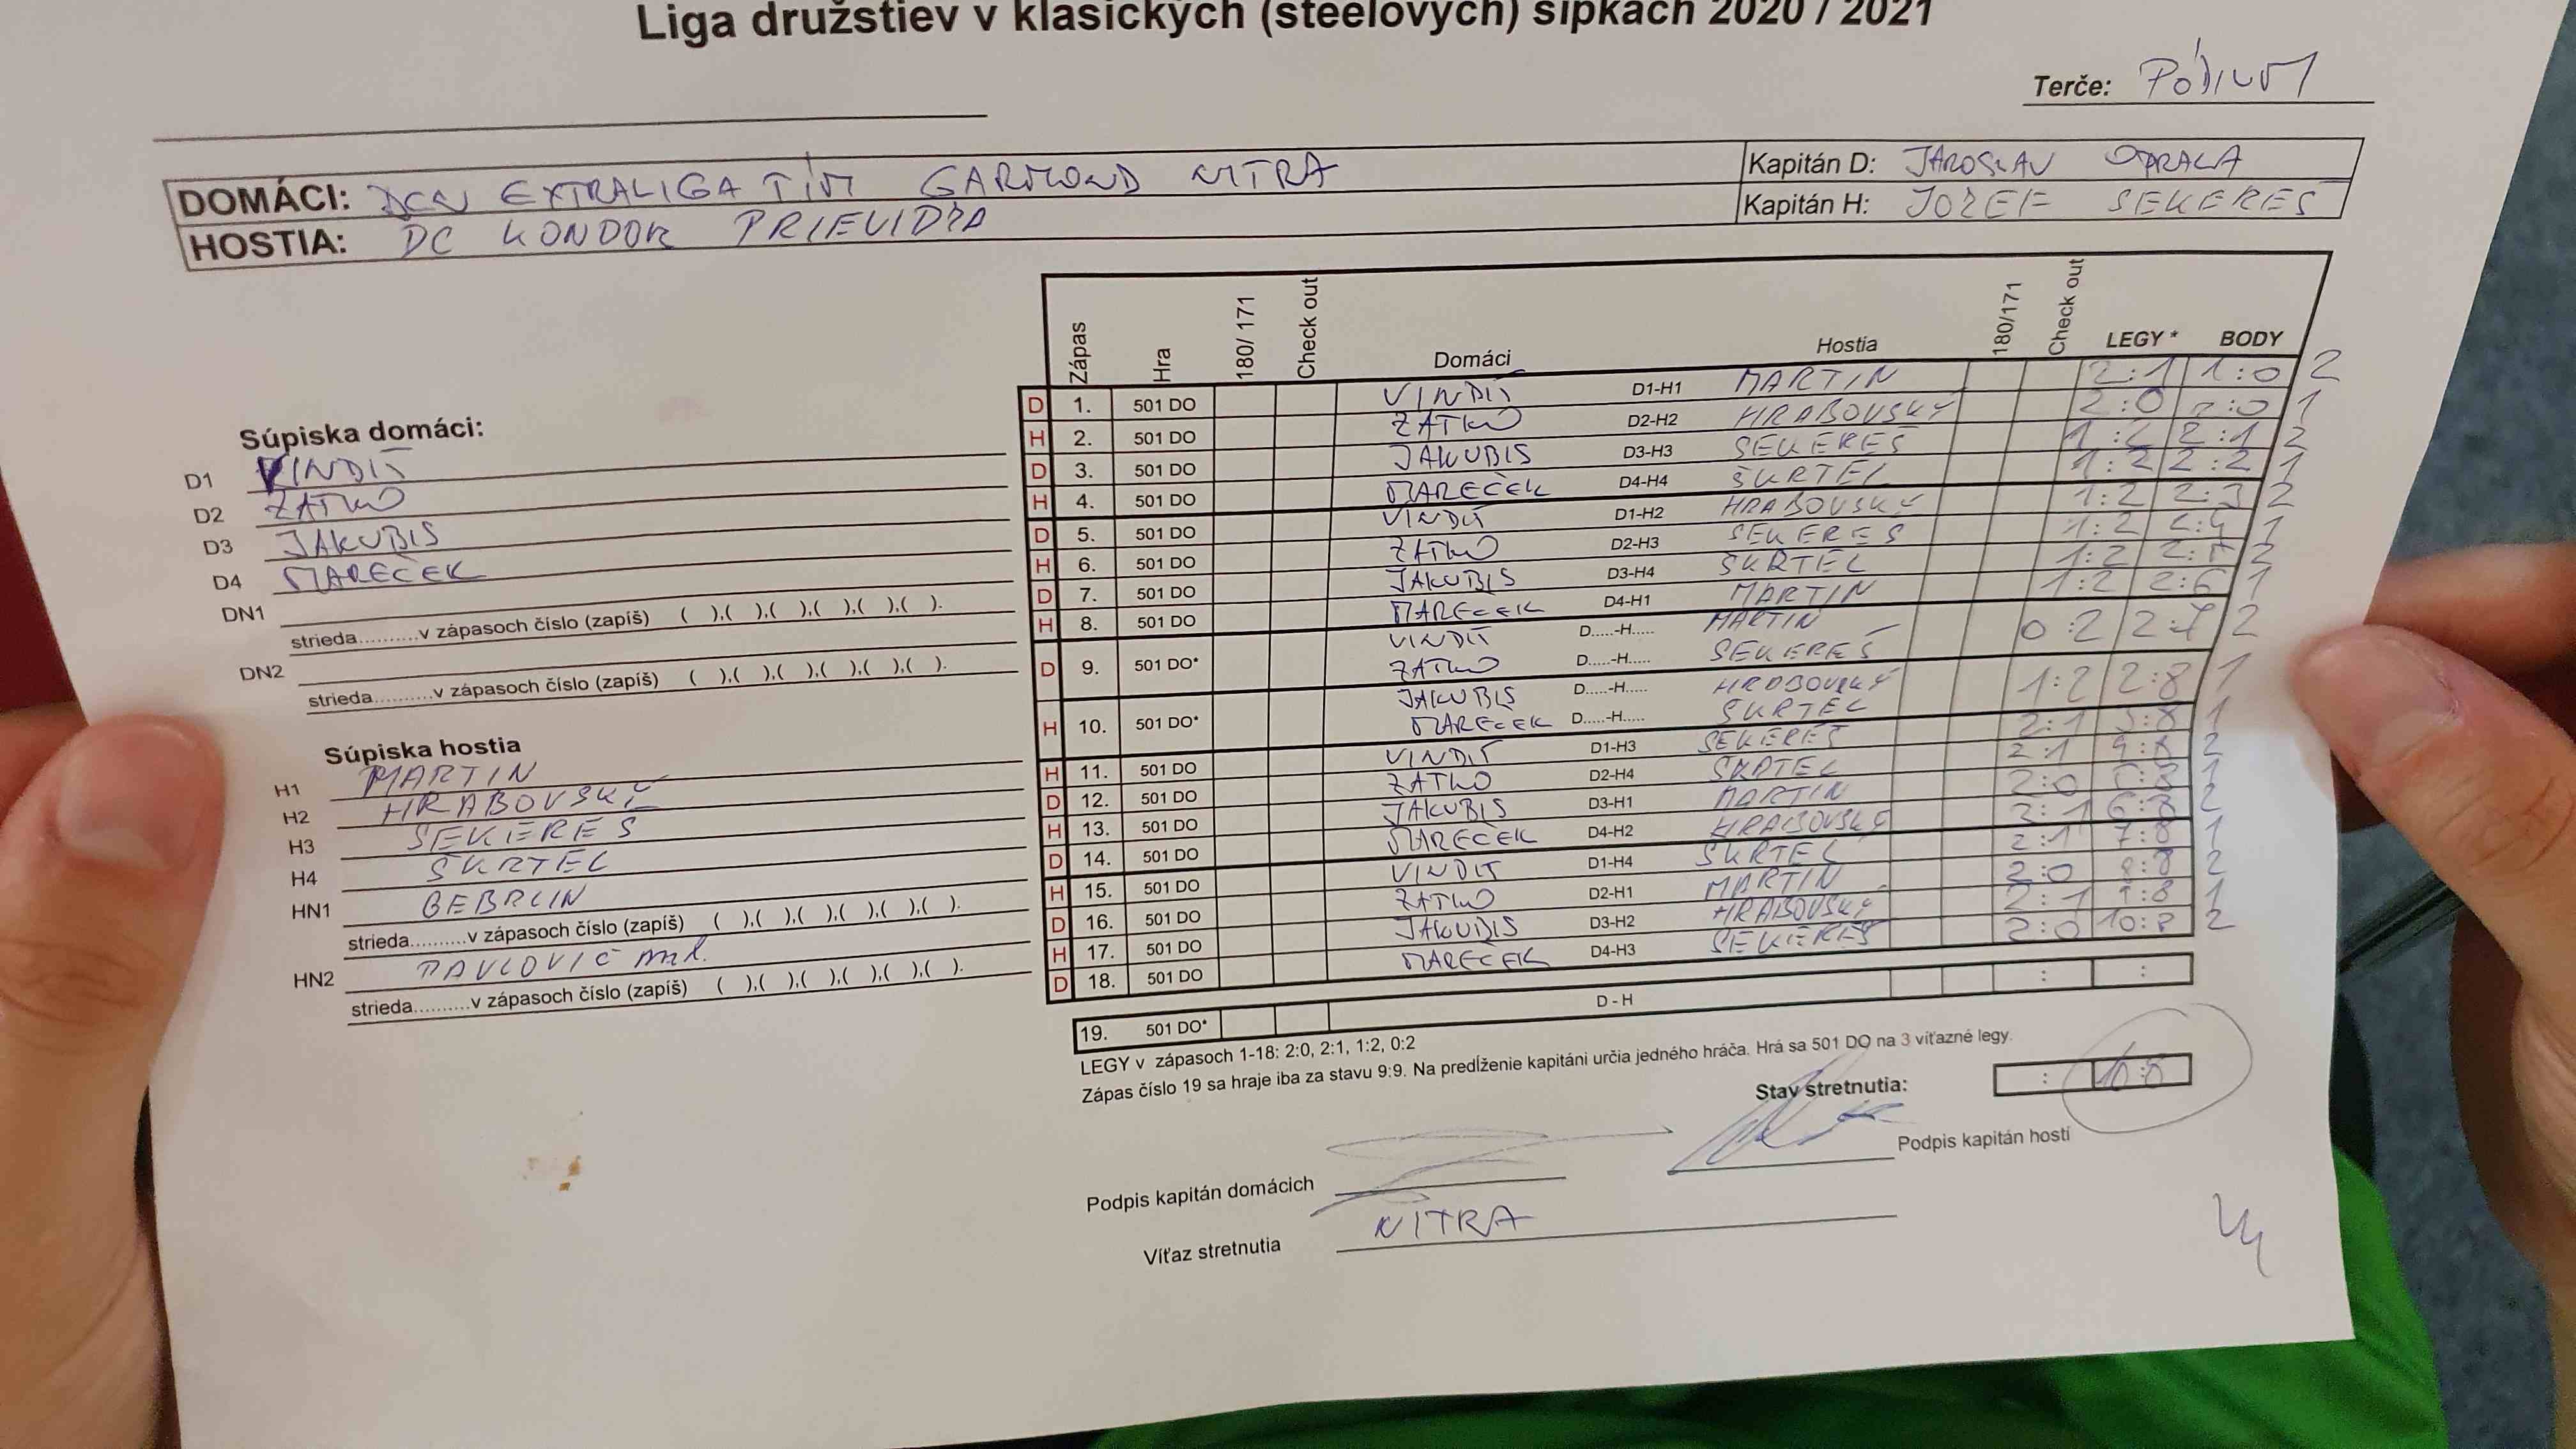 Liga družstiev v klasických (steelových) šípkach 2020 / 2021
Terče: PÓDIUM
DOMÁCI: DCN EXTRALIGA TÍM GARMOND NITRA
Kapitán D: JAROSLAV
HOSTIA: DC KONDOR PRIEVIDZA
Kapitán H: JOZEF SEKEREŠ
Zápas Hra 180/ 171 Check out Domáci Hostia 180/171 Check out LEGY * BODY
D 1. 501 DO VINDIŠ D1-H1 MARTIN 2:1 1:0 2
H 2. 501 DO ZATKO D2-H2 HRABOVSKÝ 2:0 2:0 1
D 3. 501 DO JAKUBIS D3-H3 SEKEREŠ 1:2 2:1 2
H 4. 501 DO MAREČEK D4-H4 ŠKRTEL 1:2 2:2 1
D 5. 501 DO VINDIŠ D1-H2 HRABOVSKÝ 1:2 2:3 2
H 6. 501 DO ZATKO D2-H3 SEKEREŠ 1:2 2:4 1
D 7. 501 DO JAKUBIS D3-H4 ŠKRTEL 1:2 2:5 2
H 8. 501 DO MAREČEK D4-H1 MARTIN 1:2 2:6 1
D 9. 501 DO* VINDIŠ D.....-H..... MARTIN 0:2 2:7 2
ZATKO D.....-H..... SEKEREŠ
H 10. 501 DO* JAKUBIS D.....-H..... HRABOVSKÝ 1:2 2:8 1
MAREČEK D.....-H..... ŠKRTEL
H 11. 501 DO VINDIŠ D1-H3 SEKEREŠ 2:1 3:8 1
D 12. 501 DO ZATKO D2-H4 ŠKRTEL 2:1 4:8 2
H 13. 501 DO JAKUBIS D3-H1 MARTIN 2:0 5:8 1
D 14. 501 DO MAREČEK D4-H2 HRABOVSKÝ 2:1 6:8 2
H 15. 501 DO VINDIŠ D1-H4 ŠKRTEL 2:1 7:8 1
D 16. 501 DO ZATKO D2-H1 MARTIN 2:0 8:8 2
H 17. 501 DO JAKUBIS D3-H2 HRABOVSKÝ 2:1 9:8 1
D 18. 501 DO MAREČEK D4-H3 SEKEREŠ 2:0 10:8 2
19. 501 DO* D - H : :
Súpiska domáci:
D1 VINDIŠ
D2 ZATKO
D3 JAKUBIS
D4 MAREČEK
DN1
strieda..........v zápasoch číslo (zapíš) ( ),( ),( ),( ),( ),( ).
DN2
strieda..........v zápasoch číslo (zapíš) ( ),( ),( ),( ),( ),( ).
Súpiska hostia
H1 MARTIN
H2 HRABOVSKÝ
H3 SEKEREŠ
H4 ŠKRTEL
HN1 BEBRLIN
strieda..........v zápasoch číslo (zapíš) ( ),( ),( ),( ),( ),( ).
HN2 PAVLOVIČ ml.
strieda..........v zápasoch číslo (zapíš) ( ),( ),( ),( ),( ),( ).
LEGY v zápasoch 1-18: 2:0, 2:1, 1:2, 0:2
Zápas číslo 19 sa hraje iba za stavu 9:9. Na predĺženie kapitáni určia jedného hráča. Hrá sa 501 DO na 3 víťazné legy.
Stav stretnutia: : 10:8
Podpis kapitán domácich
Podpis kapitán hostí
Víťaz stretnutia NITRA